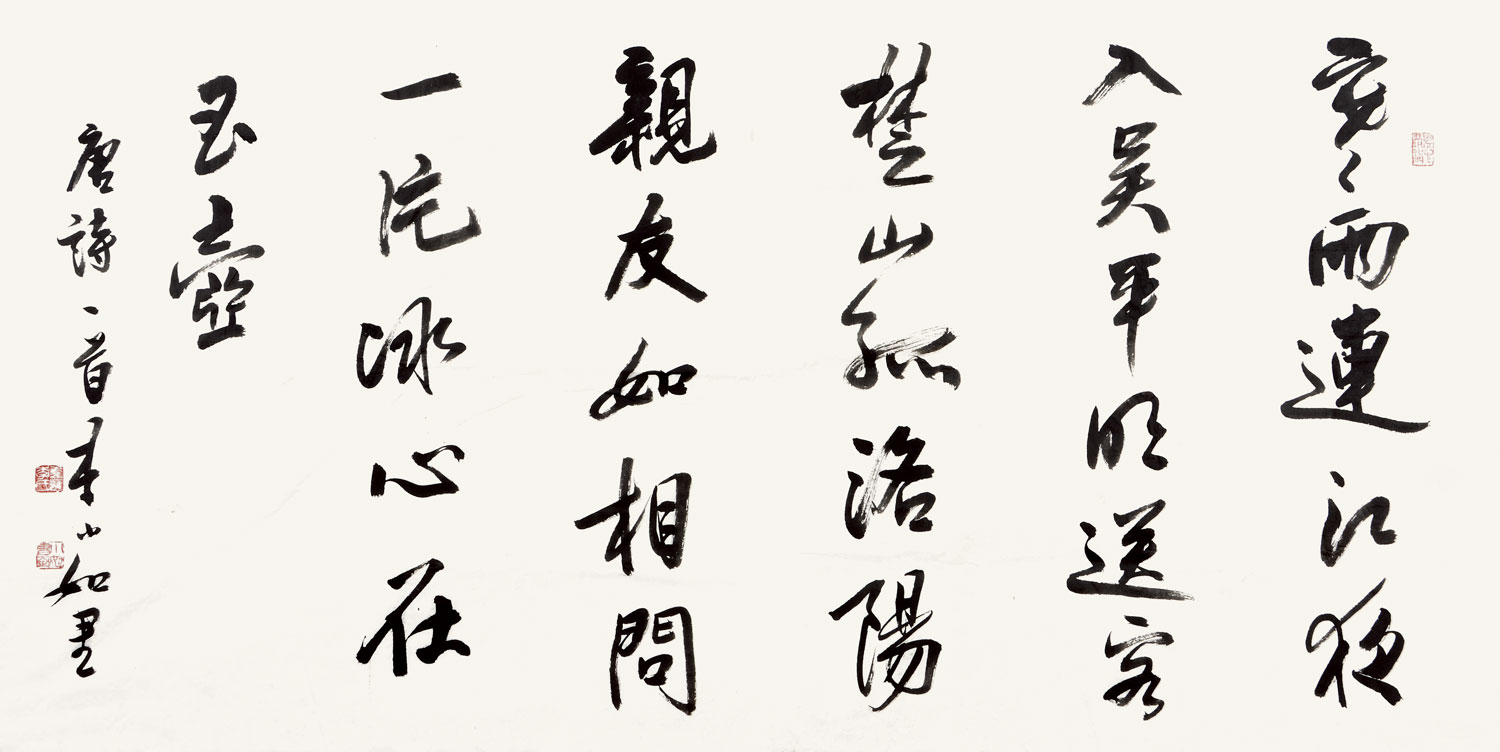 寒〻雨連江夜
入吳平明送客
楚山孤洛陽
親友如相問
一片冰心在
玉壺
唐詩一首小如書